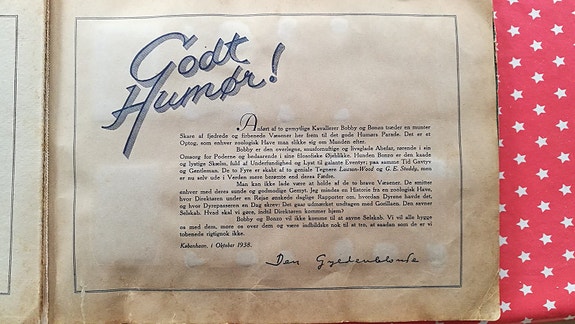 Godt
Humør!
Anført af to gemytlige Kavallerer Bobby og Bonzo træder en munter
Skare af fjedrede og firbenede Væsener her frem til det gode Humørs Parade. Det er et
Optog, som enhver zoologisk Have maa slikke sig om Munden efter.
Bobby er den overlegne, snusfornuftige og livsglade Abefar, rørende i sin
Omsorg for Poderne og bedaarende i sine filosofiske Øjeblikke. Hunden Bonzo er den kaade
og lystige Skælm, fuld af Underfundighed og Lyst til galante Eventyr; paa samme Tid Gavtyv
og Gentleman. De to Fyre er skabt af to geniale Tegnere Lawson-Wood og G. E. Studdy, men
er nu selv ude i Verden mere berømte end deres Fædre.
Man kan ikke lade være at holde af de to brave Væsener. De smitter
enhver med deres sunde og godmodige Gemyt. Jeg mindes en Historie fra en zoologisk Have,
hvor Direktøren under en Rejse ønskede daglige Rapporter om, hvordan Dyrene havde det,
og hvor Dyrepasseren en Dag skrev: Det gaar udmærket undtagen med Gorillaen. Den savner
Selskab. Hvad skal vi gøre, indtil Direktøren kommer hjem?
Bobby og Bonzo vil ikke komme til at savne Selskab. Vi vil alle hygge
os med dem, more os over dem og være indbildske nok til at tro, at saadan som de er vi
tobenede rigtignok ikke.
København, i Oktober 1938.
Den Gyldenblonde